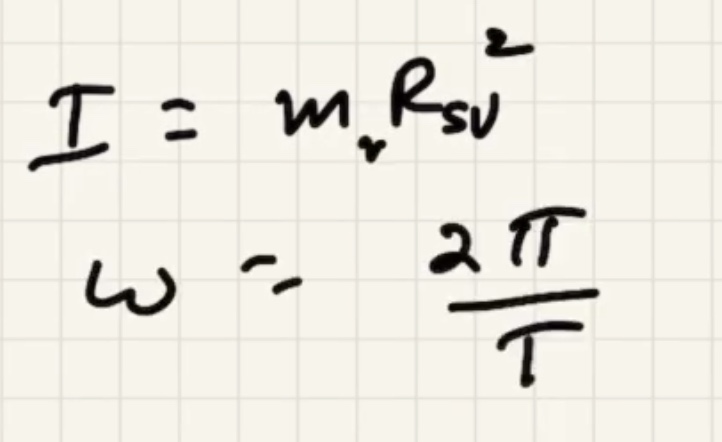 I = m_v R_sv^2
ω = 2π/T